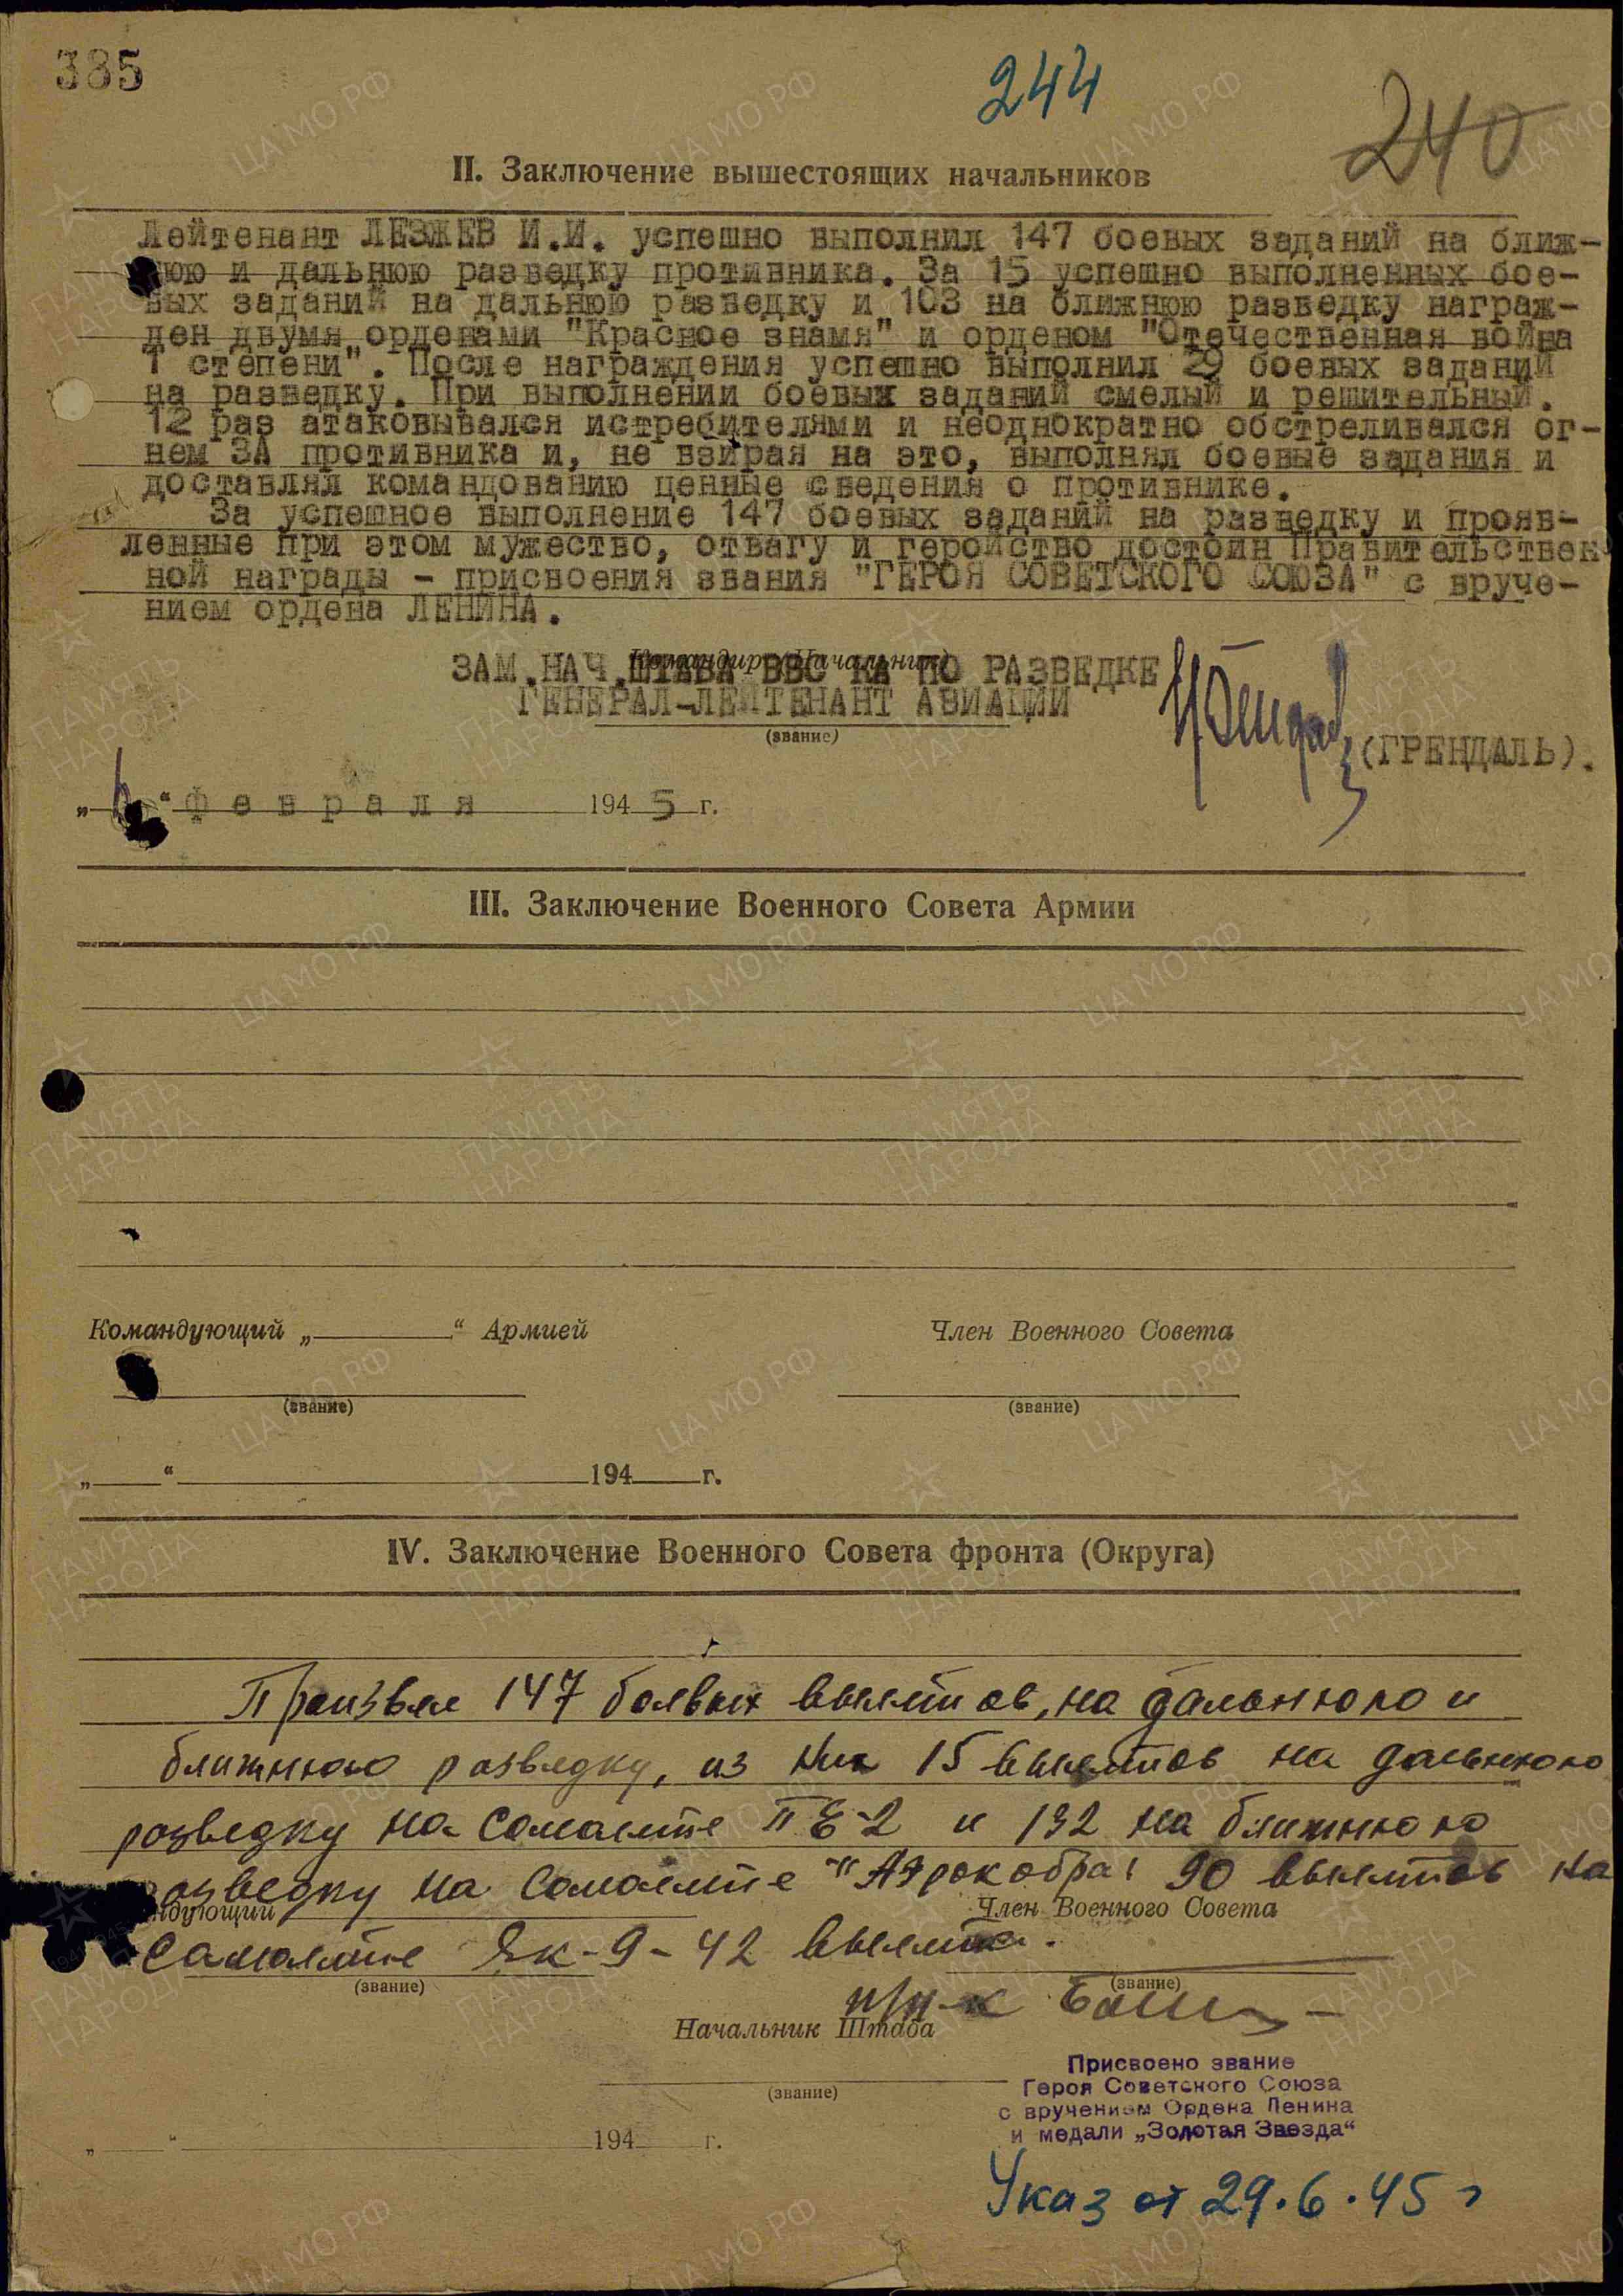 385
244
240
II. Заключение вышестоящих начальников
Лейтенант ЛЕЗЖЕВ И.И. успешно выполнил 147 боевых заданий на ближ-
нюю и дальнюю разведку противника. За 15 успешно выполненных бое-
вых заданий на дальнюю разведку и 103 на ближнюю разведку награж-
ден двумя орденами "Красное знамя" и орденом "Отечественная война
1 степени". После награждения успешно выполнил 29 боевых заданий
на разведку. При выполнении боевых заданий смелый и решительный.
12 раз атаковывался истребителями и неоднократно обстреливался ог-
нем ЗА противника и, не взирая на это, выполнял боевые задания и
доставлял командованию ценные сведения о противнике.
За успешное выполнение 147 боевых заданий на разведку и прояв-
ленные при этом мужество, отвагу и геройство достоин Правительствен
ной награды - присвоения звания "ГЕРОЯ СОВЕТСКОГО СОЮЗА" с вруче-
нием ордена ЛЕНИНА.
Командир (Начальник)
ЗАМ.НАЧ.ШТАБА ВВС КА ПО РАЗВЕДКЕ
ГЕНЕРАЛ-ЛЕЙТЕНАНТ АВИАЦИИ
(звание)
(ГРЕНДАЛЬ).
"6" февраля 1945 г.
III. Заключение Военного Совета Армии
Командующий „ “ Армией
Член Военного Совета
(звание)
(звание)
„ “ 194 г.
IV. Заключение Военного Совета фронта (Округа)
Произвел 147 боевых вылетов, на дальнюю и
ближнюю разведку, из них 15 вылетов на дальнюю
разведку на самолете ПЕ-2 и 132 на ближнюю
разведку на самолете "Аэрокобра" 90 вылетов на
ндующий
Член Военного Совета
самолете Як-9 - 42 вылета.
(звание)
(звание)
п/п-к
Начальник Штаба
(звание)
Присвоено звание
Героя Советского Союза
с вручением Ордена Ленина
и медали „Золотая Звезда“
„ “ 194 г.
Указ от 29.6.45 г
ЦА МО РФ
ПАМЯТЬ
НАРОДА